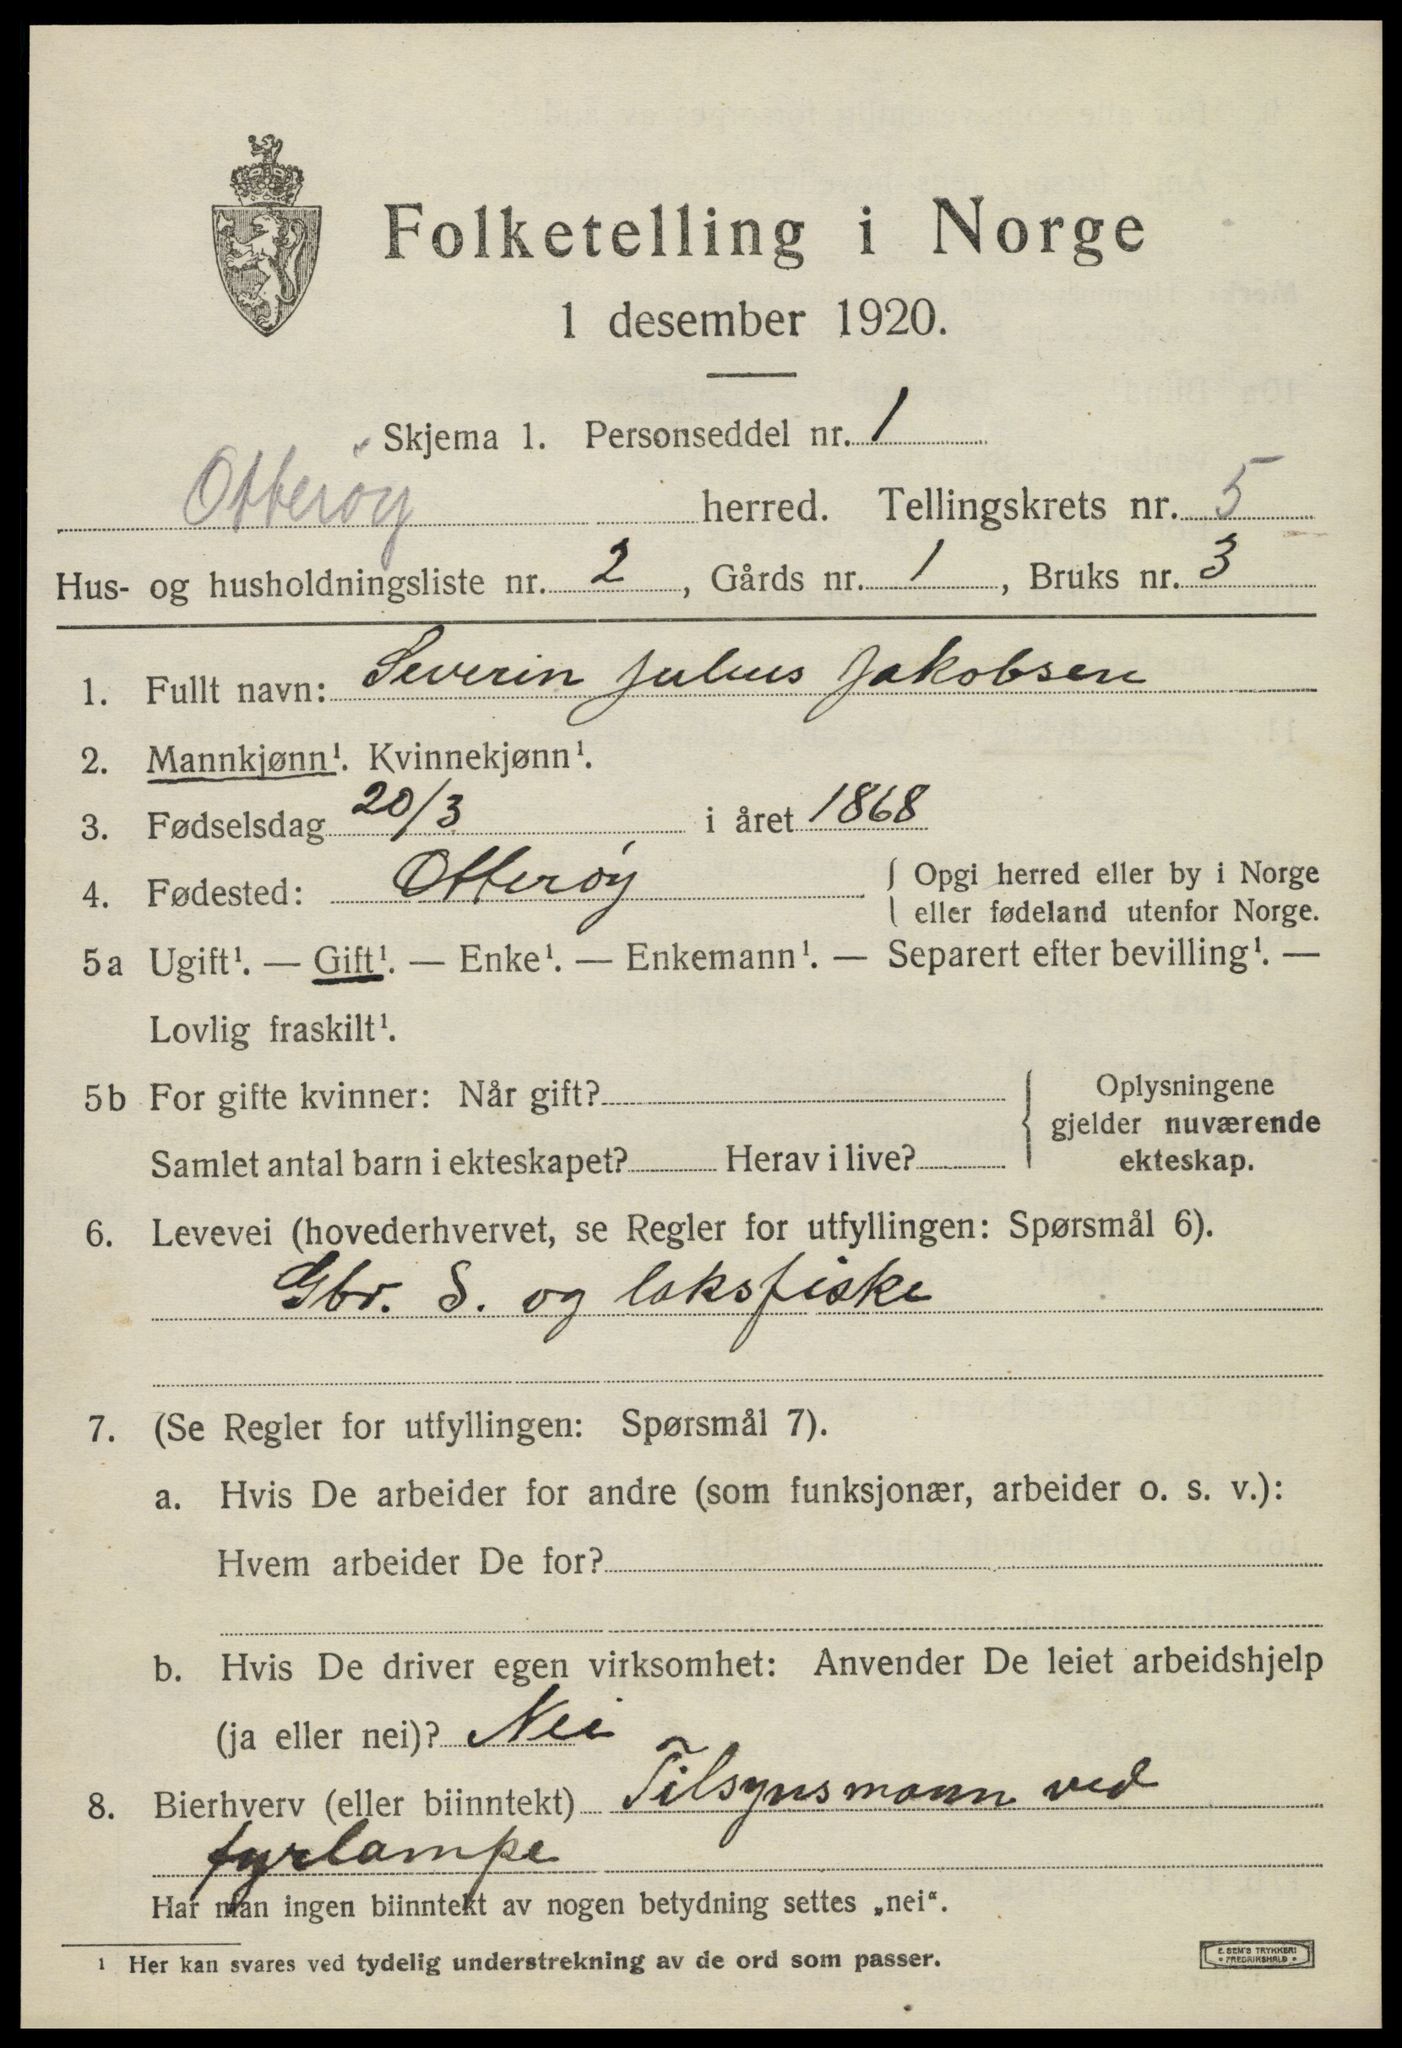 Folketelling i Norge
1 desember 1920.
Skjema 1. Personseddel nr. 1
Otterøy herred. Tellingskrets nr. 5
Hus- og husholdningsliste nr. 2, Gårds nr. 1, Bruks nr. 3
1. Fullt navn: Severin Julius Jakobsen
2. Mannkjønn¹. Kvinnekjønn¹.
3. Fødselsdag 20/3 i året 1868
4. Fødested: Otterøy { Opgi herred eller by i Norge
eller fødeland utenfor Norge.
5a Ugift¹. — Gift¹. — Enke¹. — Enkemann¹. — Separert efter bevilling¹. —
Lovlig fraskilt¹.
5b For gifte kvinner: Når gift? { Oplysningene
gjelder nuværende
Samlet antal barn i ekteskapet? Herav i live? ekteskap.
6. Levevei (hovederhvervet, se Regler for utfyllingen: Spørsmål 6).
Gbr. S. og laksfiske
7. (Se Regler for utfyllingen: Spørsmål 7).
a. Hvis De arbeider for andre (som funksjonær, arbeider o. s. v.):
Hvem arbeider De for?
b. Hvis De driver egen virksomhet: Anvender De leiet arbeidshjelp
(ja eller nei)? Nei
8. Bierhverv (eller biinntekt) Tilsynsmann ved
fyrlampe
Har man ingen biinntekt av nogen betydning settes „nei“.
¹ Her kan svares ved tydelig understrekning av de ord som passer.
E. SEM'S TRYKKERI
• FREDRIKSHALD •